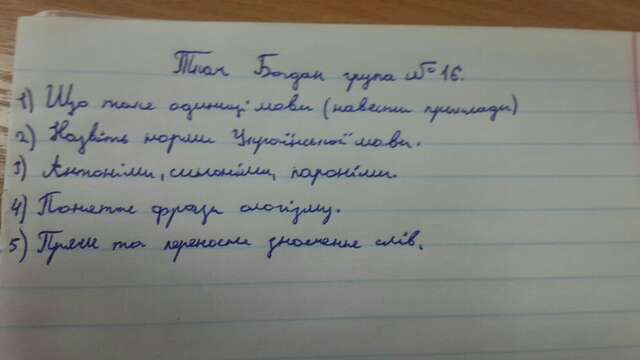 Ткач Богдан група № 16.
1) Що таке одиниці мови (навести приклади)
2) Назвіть норми Української мови.
3) Антоніми, синоніми, пароніми.
4) Поняття фразеологізму.
5) Пряме та переносне значення слів.